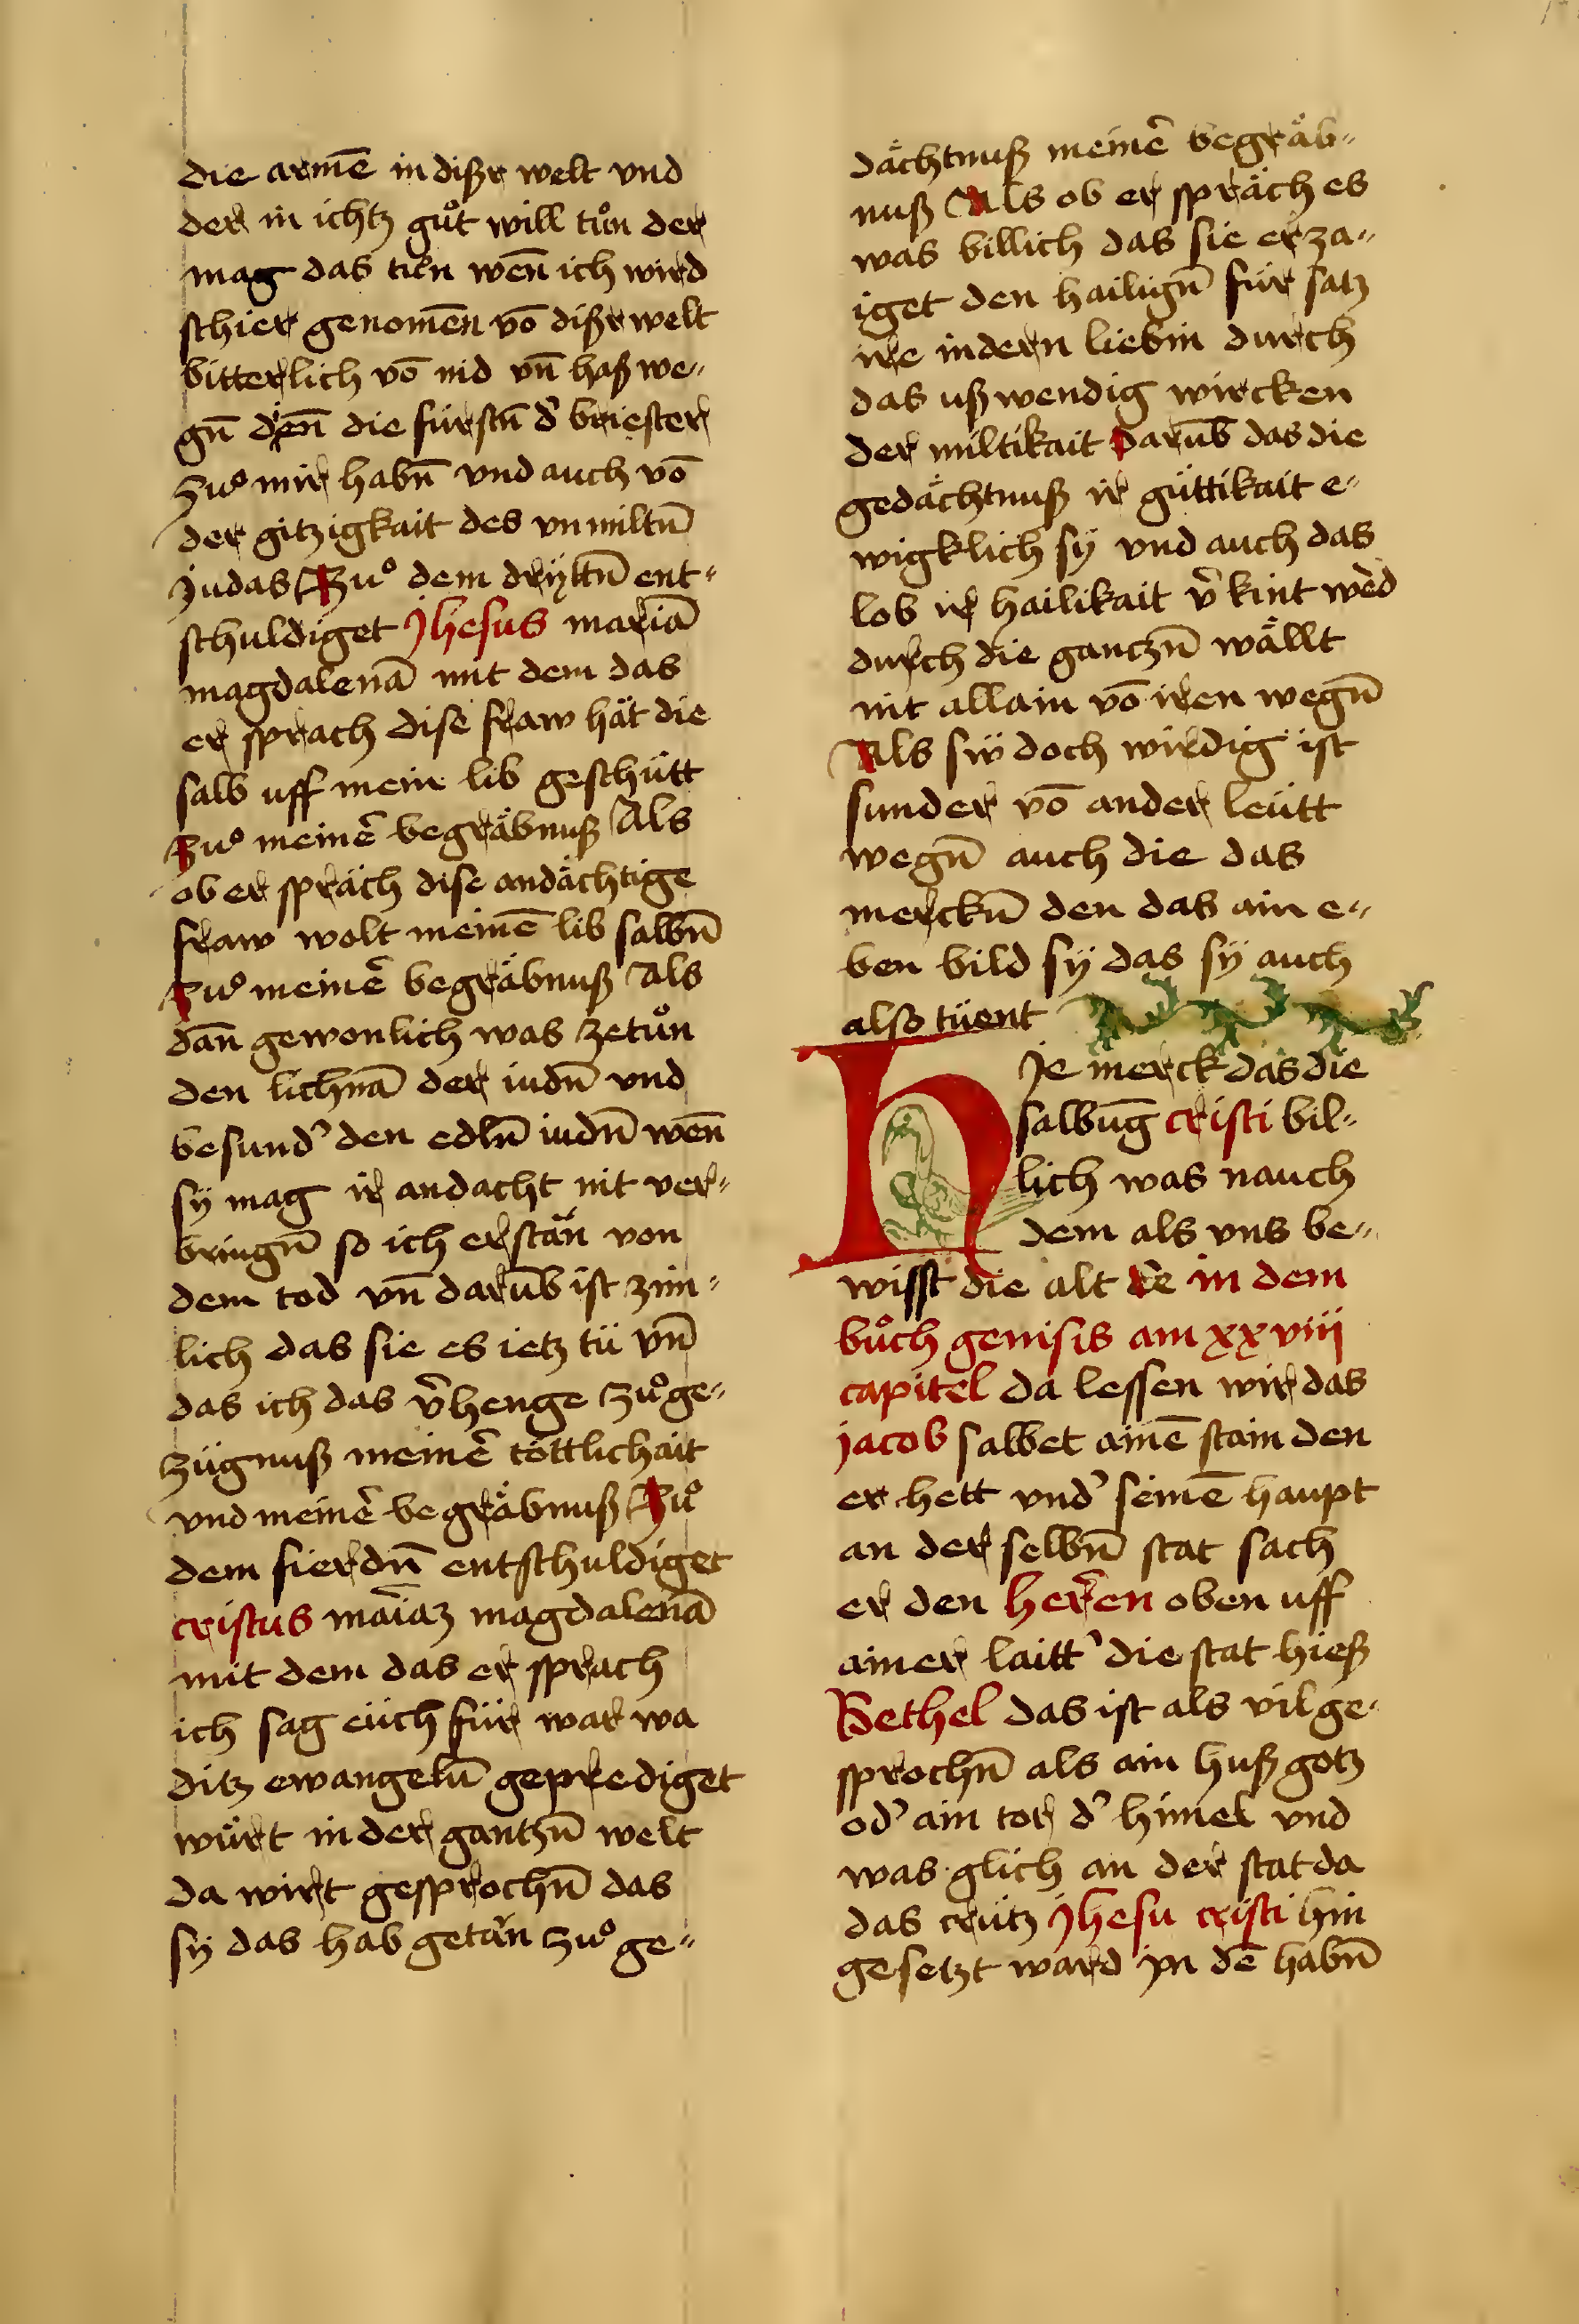 die armē in dißr welt vnd
der in ichtz guͦt will tuͦn der
mag das tuͤn wen̄ ich wird
schier genomēn vō dißr welt
bitterlich vō nid vn̄ haß we„
gn̄ den̄ die fürstn̄ dˀ briester
zuͦ mir habn̄ vnd auch vō
der gitzigkait des vnmiltn̄
judas Zuͦ dem dryttn̄ ent„
schuldiget jhesus mariā
magdalenā mit dem das
er sprach dise fraw hät die
salb uff mein lib geschütt
zuͦ meinē begräbnuß Als
ob er spräch dise andächtige
fraw wolt meinē lib salbn̄
Zuͦ meinē begräbnuß Als
dan̄ gewonlich was zetuͦn
den lichnā der iudn̄ vnd
besundˀ den edln̄ iudn̄ wen̄
sÿ mag ir andacht nit ver„
bringn̄ so ich erstän von
dem tod vn̄ darūb ist zim„
lich das sie es ietz tü vn̄
das ich das v̄henge zuͦ ge„
zügnuß meinē töttlichait
vnd meinē begräbnuß Zuͦ
dem fierdn̄ entschuldiget
cristus māiaz magdalenā
mit dem das er sprach
ich sag eüch für war wa
ditz ewangelū geprediget
würt in der gantzn̄ welt
da wirt gesprochn̄ das
sÿ das hab getän zuͦ ge„
dächtnuß meinē begräb„
nuß Als ob er spräch es
was billich das sie erza„
iget den hailign̄ für satz
ire indern liebin durch
das ußwendig wircken
der miltikait Darūb das die
gedächtnuß ir güttikait e„
wigklich sÿ vnd auch das
lob ir hailikait v̄kint wed
durch die ganczn̄ wällt
nit allain vō iren wegn̄
Als sÿ doch wirdig ist
sunder vō ander leütt
wegn̄ auch die das
merckn̄ den das ain e„
ben bild sÿ das sÿ auch
also tüent
Hie merck das die
salbūg cristi bil„
lich was nauch
dem als vns be„
wisst die alt ee in dem
buͦch genisis am xxviiij
capitel da lessen wir das
jacob salbet ainē stain den
er hett vndˀ seinē haupt
an der selbn̄ stat sach
er den herren oben uff
ainer laittˀ die stat hieß
Bethel das ist als vil ge„
sprochn̄ als ain huß gotz
odˀ ain tor dˀ himel vnd
was glich an der stat da
das crütz jhesu cristi hin
gesetzt ward jn dē habn̄